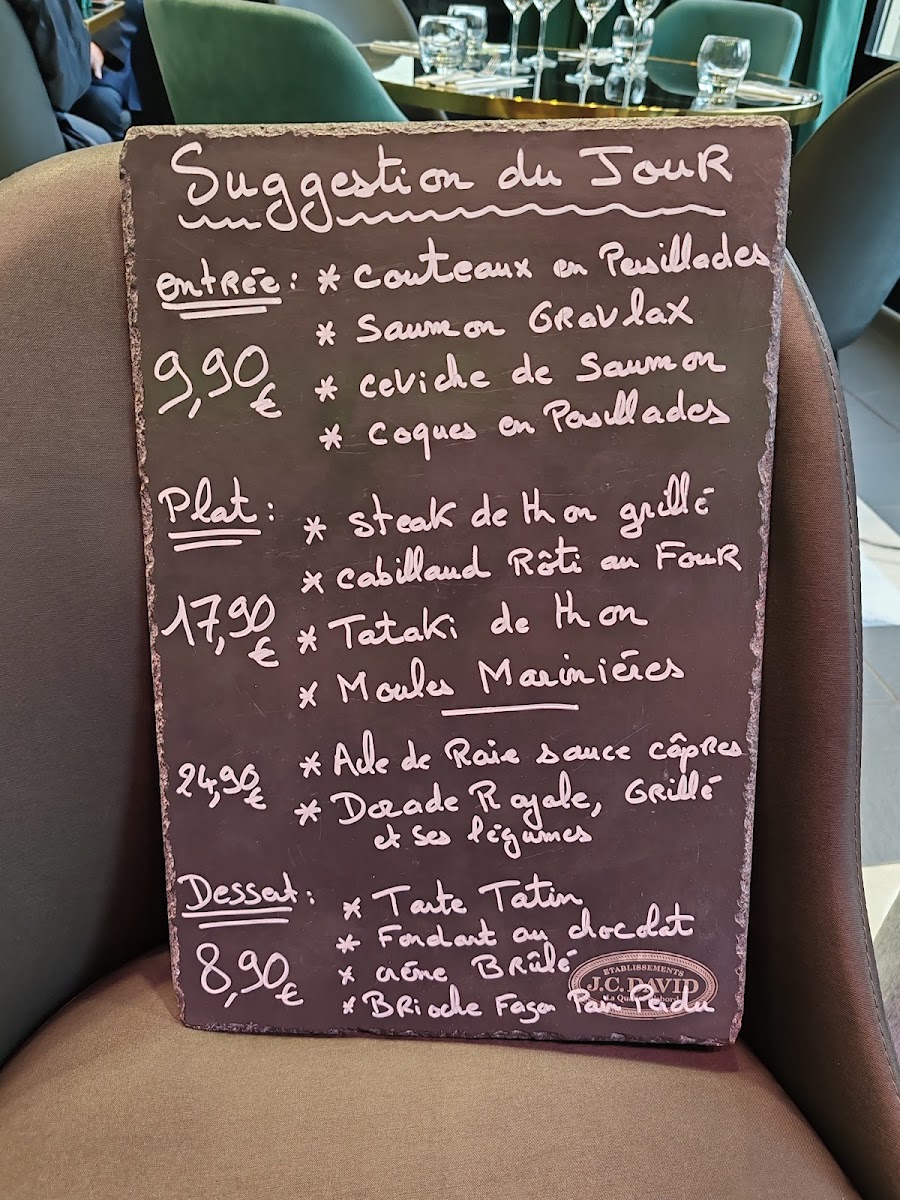 Suggestion du Jour
entrée : * Couteaux en Persillades
* Saumon Gravlax
9,90 €
* Ceviche de Saumon
* Coques en Persillades
Plat : * Steak de thon grillé
* Cabillaud Rôti au Four
17,90 €
* Tataki de thon
* Moules Marinières
24,90 €
* Aile de Raie sauce câpres
* Dorade Royale, Grillé
et ses légumes
Dessert : * Tarte Tatin
* Fondant au chocolat
8,90 €
* crème Brûlé
* Brioche Façon Pain Perdu
ETABLISSEMENTS
J.C. DAVID